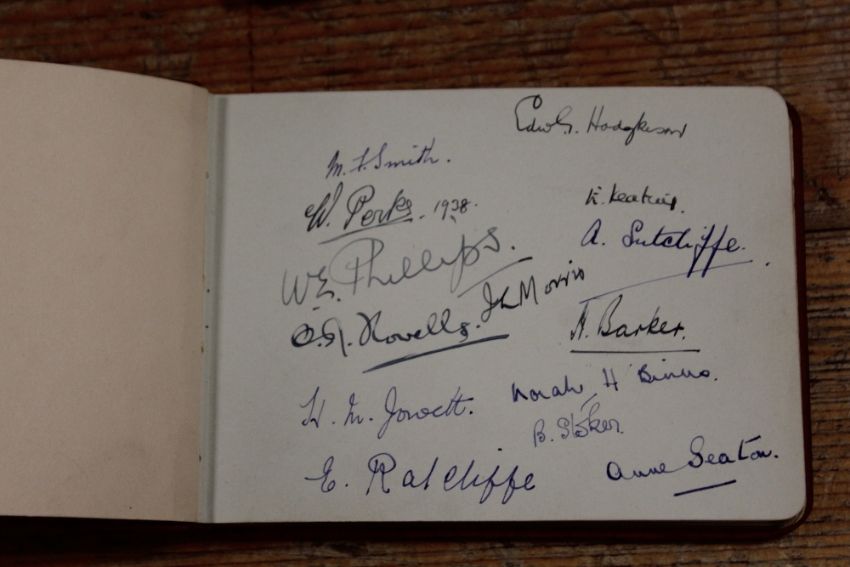 Edw G. Hodgkinson
M. F. Smith.
W. Perks. 1938.
K. Keating.
A. Sutcliffe.
W.E. Phillips.
Morris
Howells.
A. Barker.
H. M. Jowett.
Norah H Binns.
B. Stoker.
E. Ratcliffe
Anne Seaton.